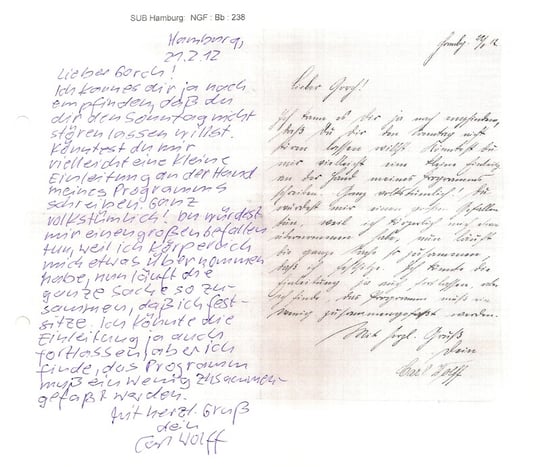 SUB Hamburg: NGF : Bb : 238
Hamburg,
21.2.12
Lieber Gorch!
Ich kann es dir ja nach-
empfinden, daß du
dir den Sonntag nicht
stören lassen willst.
Könntest du mir
vielleicht eine kleine
Einleitung an der Hand
meines Programms
schreiben. Ganz
volkstümlich! Du würdest
mir einen großen Gefallen
tun, weil ich körperlich
mich etwas übernommen
habe, nun läuft die
ganze Sache so zu-
sammen, daß ich fest-
sitze. Ich könnte die
Einleitung ja auch
fortlassen, aber ich
finde, das Programm
muß ein wenig zusammen-
gefaßt werden.
Mit herzl. Gruß
dein
Carl Wolff
Lieber Gorch!
Ich kann es Dir ja
daß Du Dir den Sonntag nicht
stören lassen willst. Könntest Du
mir vielleicht eine kleine Einleitung
an der Hand meines Programms
schreiben. Ganz volkstümlich! Du
würdest mir einen Gefallen
tun, weil ich körperlich mich etwas
übernommen habe, nun läuft
die ganze Sache so zusammen,
daß ich festsitze. Ich könnte die
Einleitung ja auch fortlassen, aber
ich finde, das Programm muß ein
wenig zusammengefaßt werden.
Mit herzl. Gruß
Dein
Carl Wolff